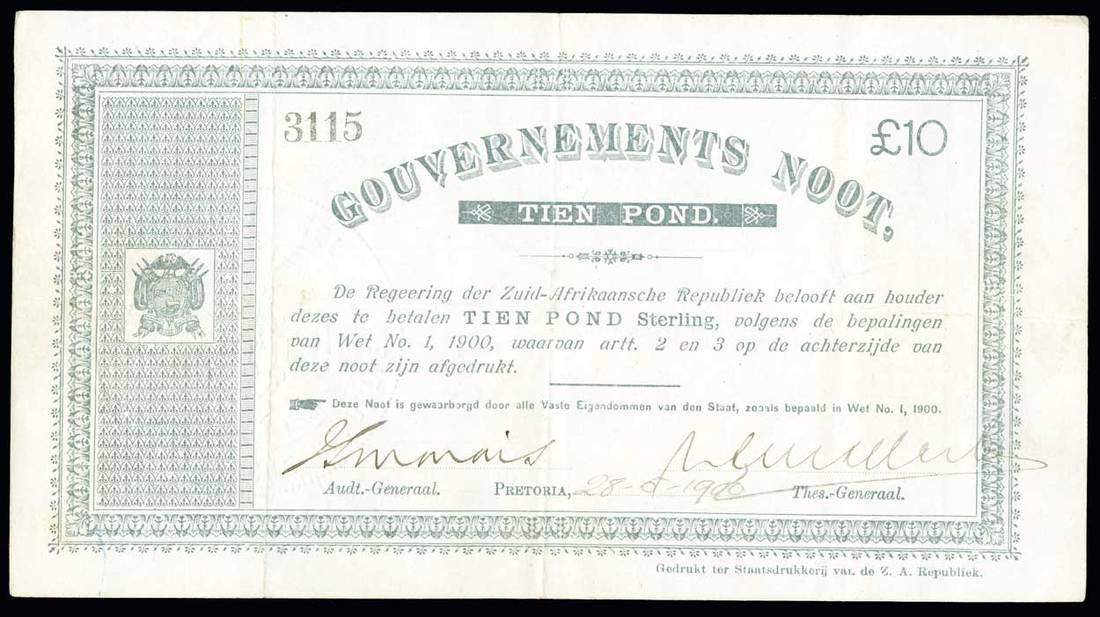 3115
£10
GOUVERNEMENTS NOOT,
TIEN POND.
De Regeering der Zuid-Afrikaansche Republiek belooft aan houder
dezes te betalen TIEN POND Sterling, volgens de bepalingen
van Wet No. 1, 1900, waarvan artt. 2 en 3 op de achterzijde van
deze noot zijn afgedrukt.
Deze Noot is gewaarborgd door alle Vaste Eigendommen van den Staat, zooals bepaald in Wet No. 1, 1900.
Audt.-Generaal. PRETORIA, Thes.-Generaal.
Gedrukt ter Staatsdrukkerij van de Z. A. Republiek.